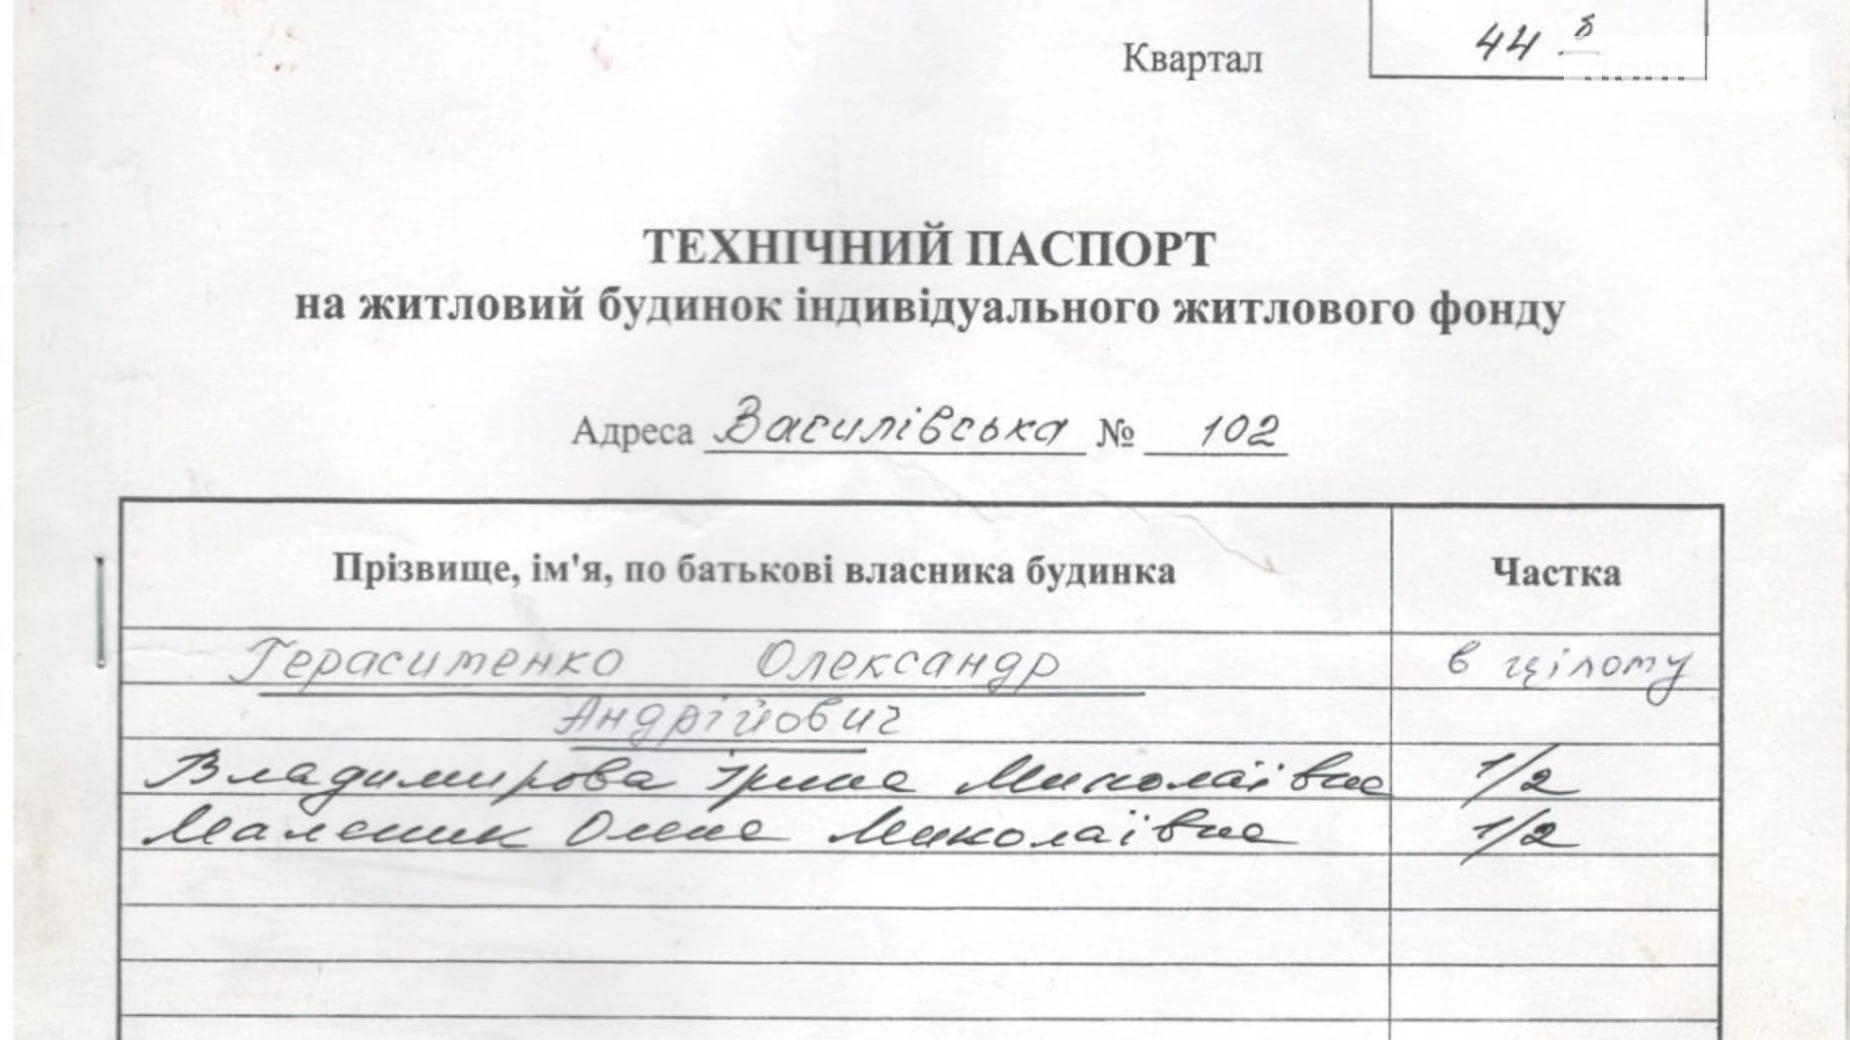 Квартал 44 б
ТЕХНІЧНИЙ ПАСПОРТ
на житловий будинок індивідуального житлового фонду
Адреса Василівська № 102
Прізвище, ім'я, по батькові власника будинка Частка
Герасименко Олександр в цілому
Андрійович
Владимирова Ірина Миколаївна 1/2
Олена Миколаївна 1/2